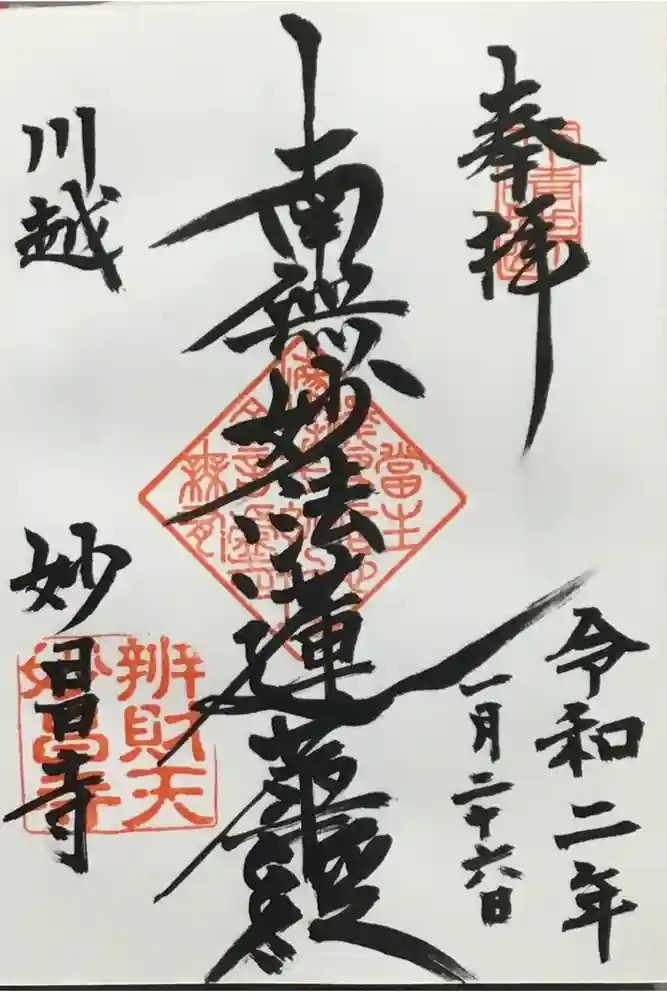 奉拝
令和二年
一月二十六日
南無妙法蓮華経
川越
妙昌寺
辨財天
妙昌寺